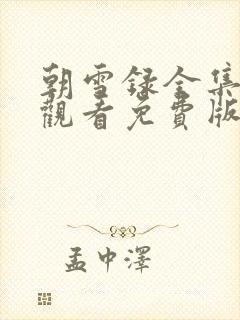 朝雪録全集
觀看免費版
孟中澤